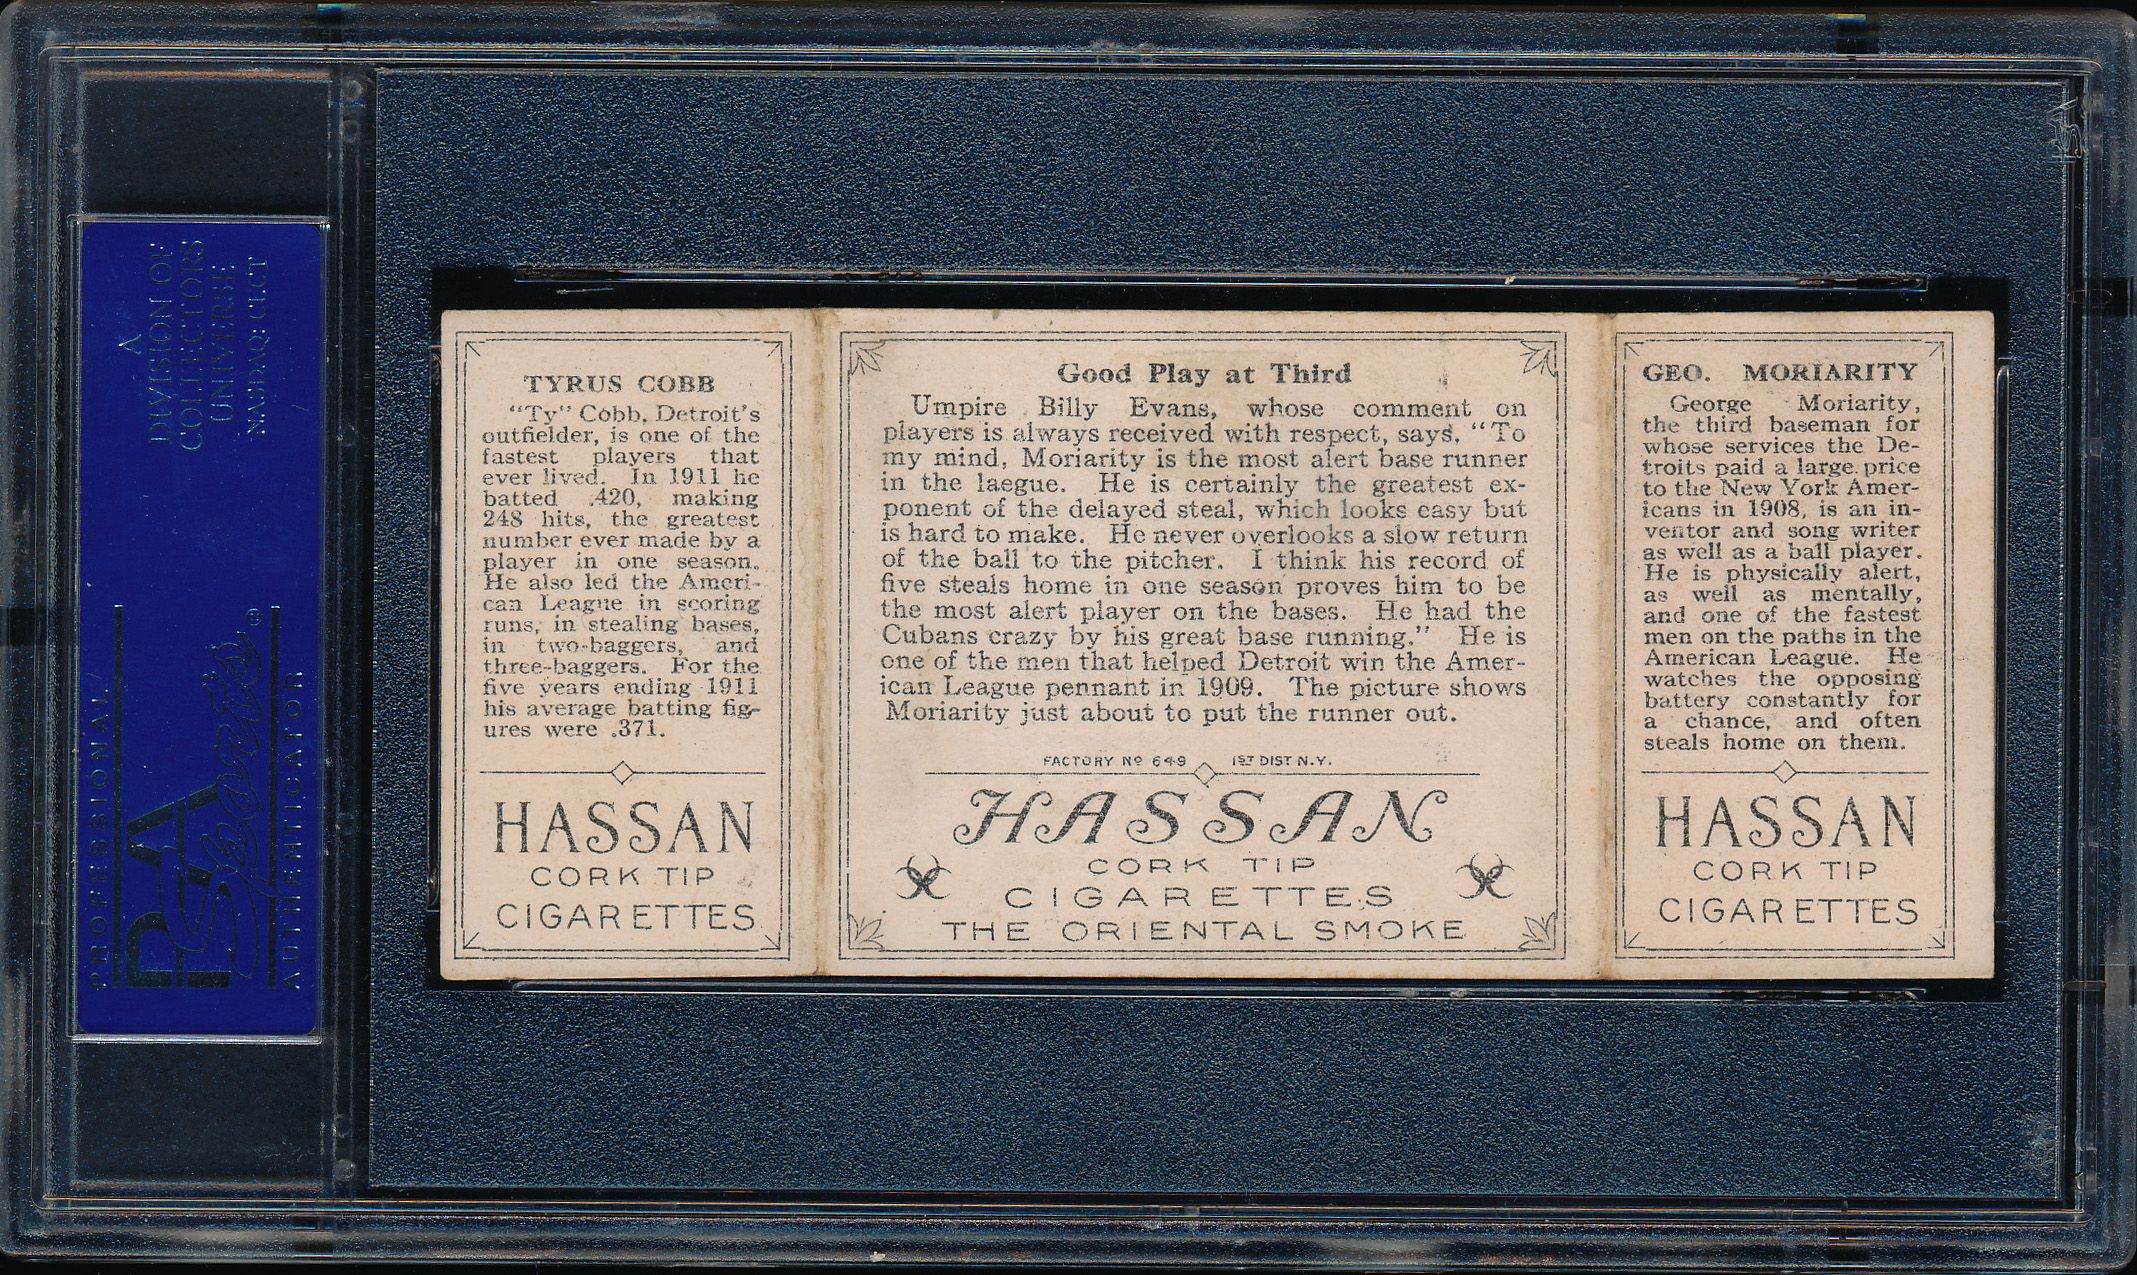 A
DIVISION OF
COLLECTORS
UNIVERSE
NASDAQ: CLCT
PROFESSIONAL
PSA
Sports®
AUTHENTICATOR
TYRUS COBB
"Ty" Cobb, Detroit's
outfielder, is one of the
fastest players that
ever lived. In 1911 he
batted .420, making
248 hits, the greatest
number ever made by a
player in one season.
He also led the Ameri-
can League in scoring
runs, in stealing bases,
in two-baggers, and
three-baggers. For the
five years ending 1911
his average batting fig-
ures were .371.
HASSAN
CORK TIP
CIGARETTES
Good Play at Third
Umpire Billy Evans, whose comment on
players is always received with respect, says, "To
my mind, Moriarity is the most alert base runner
in the laegue. He is certainly the greatest ex-
ponent of the delayed steal, which looks easy but
is hard to make. He never overlooks a slow return
of the ball to the pitcher. I think his record of
five steals home in one season proves him to be
the most alert player on the bases. He had the
Cubans crazy by his great base running." He is
one of the men that helped Detroit win the Amer-
ican League pennant in 1909. The picture shows
Moriarity just about to put the runner out.
FACTORY Nº 649 1ST DIST N.Y.
HASSAN
CORK TIP
CIGARETTES
THE ORIENTAL SMOKE
GEO. MORIARITY
George Moriarity,
the third baseman for
whose services the De-
troits paid a large price
to the New York Amer-
icans in 1908, is an in-
ventor and song writer
as well as a ball player.
He is physically alert,
as well as mentally,
and one of the fastest
men on the paths in the
American League. He
watches the opposing
battery constantly for
a chance, and often
steals home on them.
HASSAN
CORK TIP
CIGARETTES